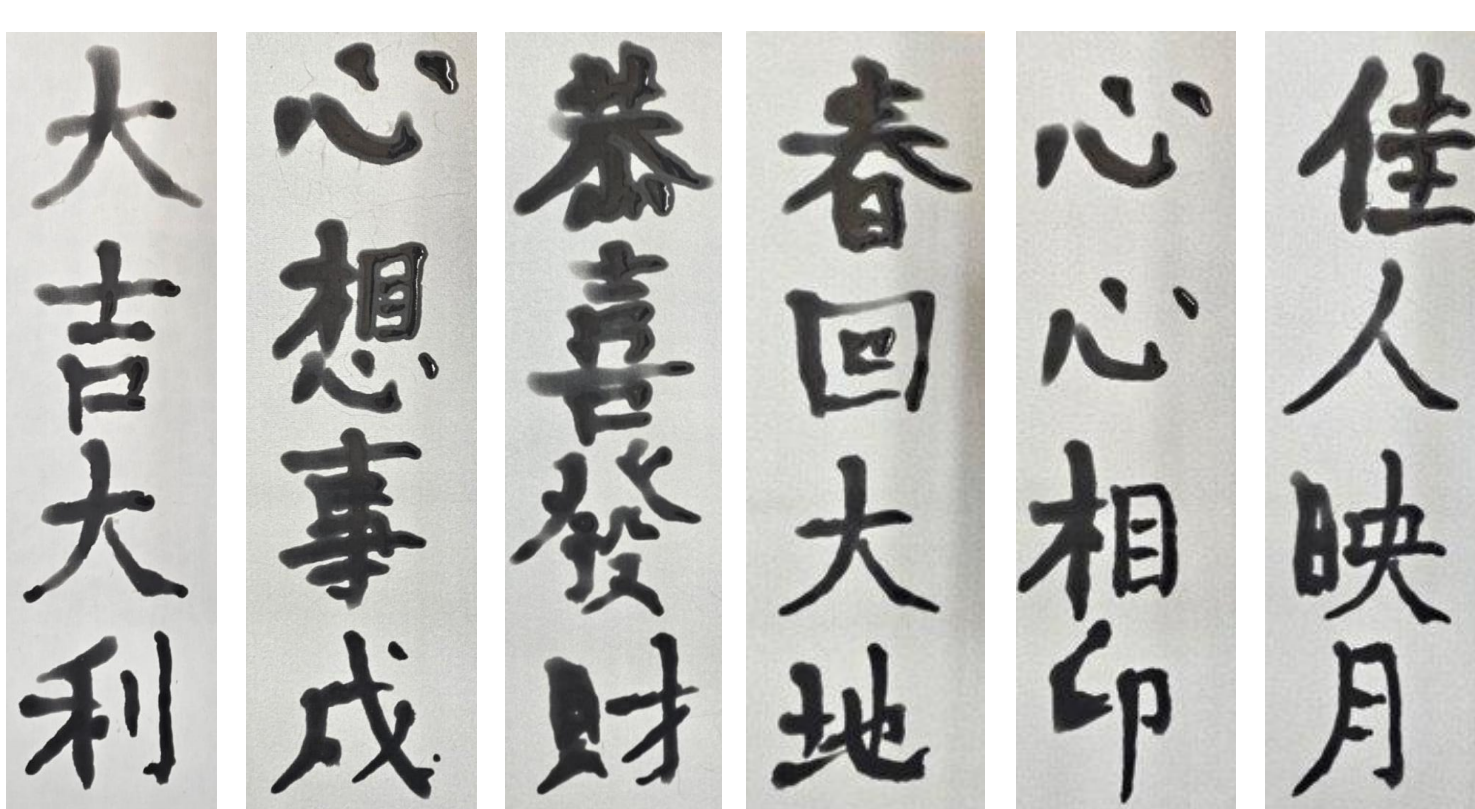 大吉大利
心想事成
恭喜發財
春回大地
心心相印
佳人映月